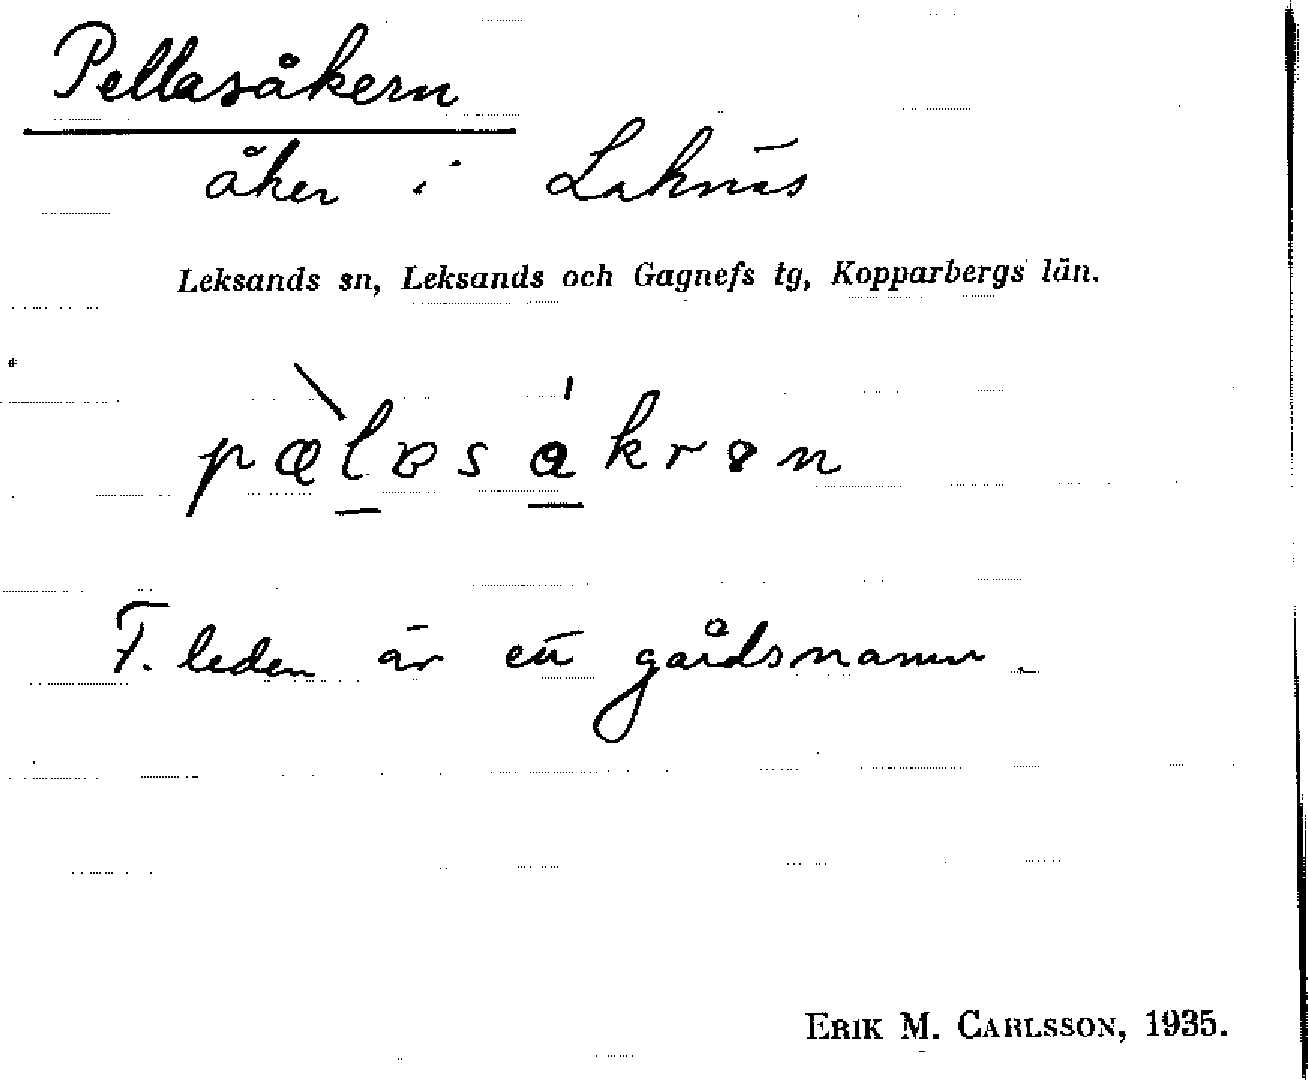 Pellasåkern
åker i Laknäs
Leksands sn, Leksands och Gagnefs tg, Kopparbergs län.
pæ̀l̲ɐsá̲krən
F. leden är ett gårdsnamn.
ERIK M. CARLSSON, 1935.